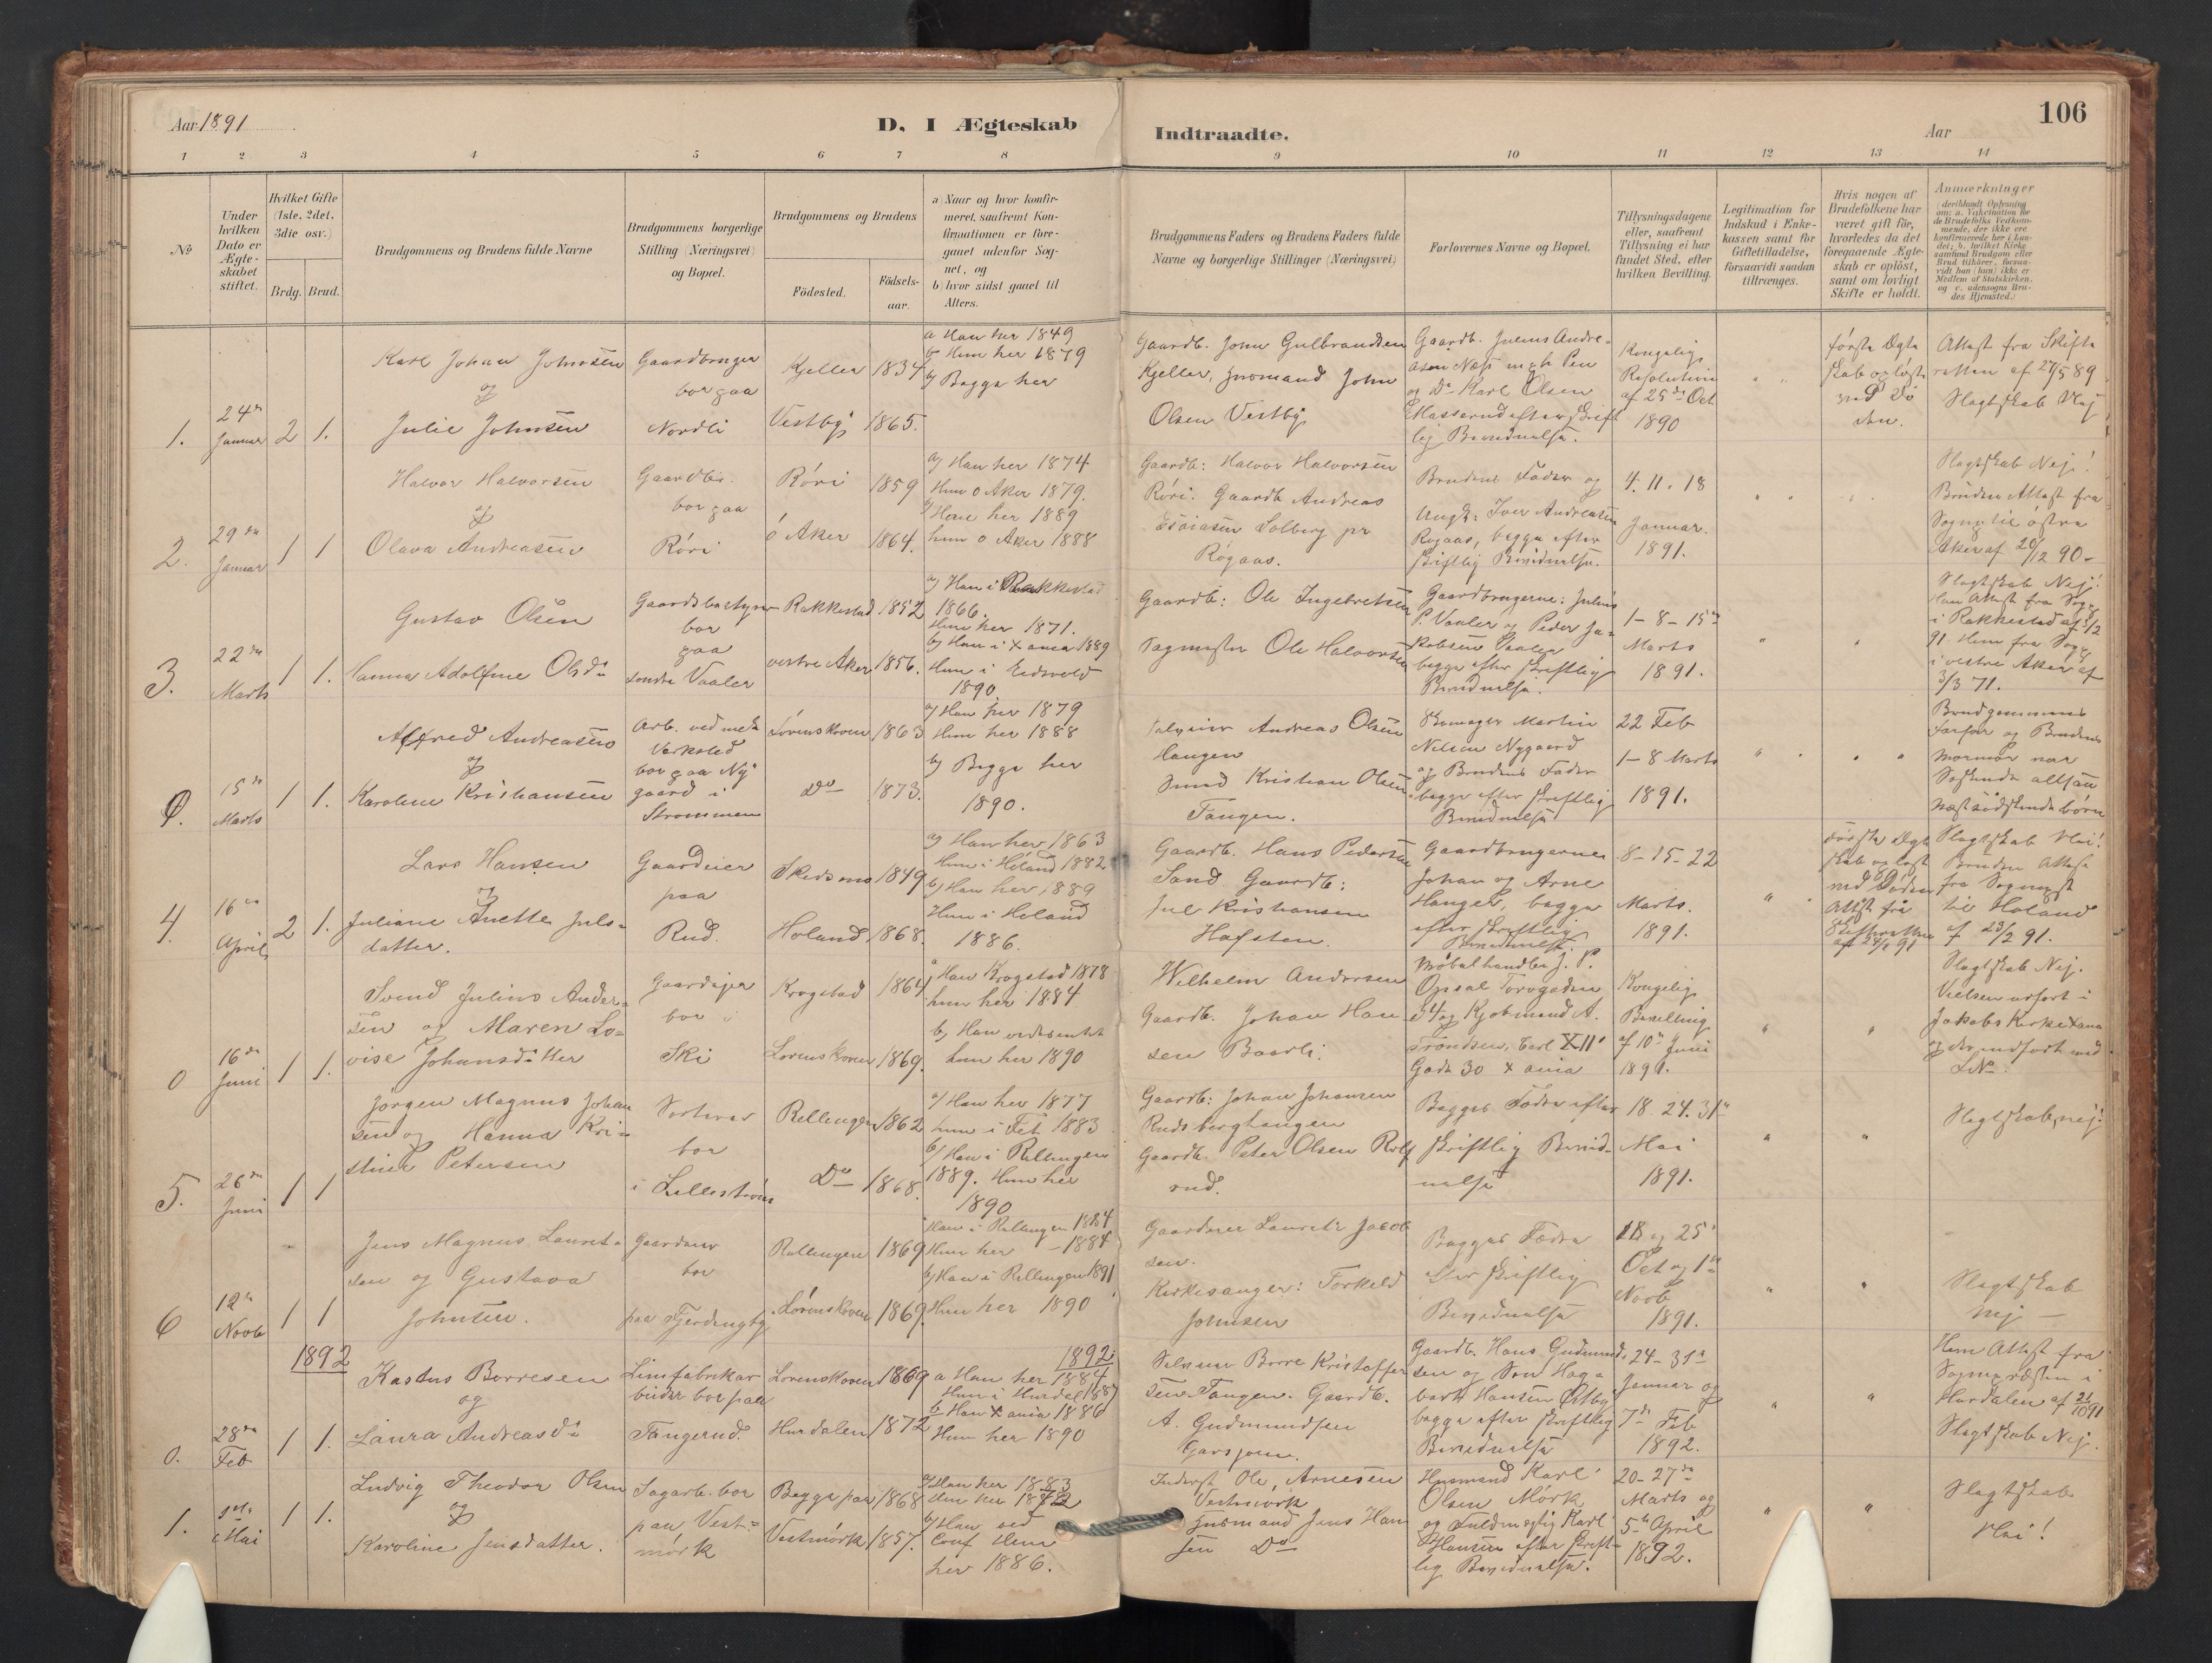 Aar 1891
D. I Ægteskab
Indtraadte.
Aar
106
1 2 3 4 5 6 7 8 9 10 11 12 13 14
No
Under hvilken Dato er Ægteskabet stiftet.
Hvilket Gifte (1ste, 2det, 3die osv.)
Brdg. Brud.
Brudgommens og Brudens fulde Navne
Brudgommens borgerlige Stilling (Næringsvei) og Bopæl.
Brudgommens og Brudens
Födested.
Födsels-aar.
a) Naar og hvor konfirmeret, saafremt Konfirmationen er foregaaet udenfor Sognet, og
b) hvor sidst gaaet til Alters.
Brudgommens Faders og Brudens Faders fulde Navne og borgerlige Stillinger (Næringsvei)
Forlovernes Navne og Bopæl.
Tillysningsdagene eller, saafremt Tillysning ei har fundet Sted, efter hvilken Bevilling.
Legitimation for Indskud i Enkekassen samt for Giftetilladelse, forsaavidt saadan tiltrænges.
Hvis nogen af Brudefolkene har været gift för, hvorledes da det foregaaende Ægteskab er oplöst, samt om lovligt Skifte er holdt.
Anmærkninger
1. 24de Januar 2 1.
Karl Johan Johnsen
og
Julie Johnsen
Gaardbruger
bor paa
Nordli
Kjeller 1834
Vestby 1865.
a Han her 1849
b Hun her 1879
b) Begge her
Gaardb. John Gulbrandsen
Kjeller, Husmand John
Olsen Vestby
Gaardb. Julius Andre-
asen Næs
og Do Karl Olsen
efter Skrift
lig Bevidnelse.
Kongelig
Resolution
af 25de Oct
1890
første Ægte
skab opløst
ved Dö
den.
Attest fra Skifte
retten af 27/5 89
Slegtskab Nej
2. 29de Januar 1 1
Halvor Halvorsen
og
Olava Andreasen
Gaardbr.
bor paa
Röri
Röri 1859
ö Aker 1864.
a) Han her 1874
Hun ö Aker 1879.
b) Han her 1889
hun ö Aker 1888
Gaardb: Halvor Halvorsen
Röri. Gaardb Andreas
Esaiasen Solberg pr
Rögaas.
Brudens Fader og
Ungk: Iver Andreasen
Rogaas, begge efter
skriftlig Bevidnelse.
4. 11. 18
Januar.
1891.
Slegtskab Nej!
Bruden Attest fra
Sogn til östre
Aker af 20/12 90-
3. 22de Marts 1 1.
Gustav Olsen
Hanna Adolfine Olsd.
Gaardsbestyrer
bor
paa
söndre Vaaler
Rakkestad 1852
vestre Aker 1856.
a) Han i Rakkestad
1866.
Hun her 1871.
b) Han i Xania 1889
Hun i Eidsvold
1890
Gaardb: Ole Ingebretsen
Sagmester Ole Halvorsen
Gaardbrugerne: Julius
P. Vaaler og Peder Ja-
kobsen Vaaler
begge efter skriftlig
Bevidnelse.
1- 8- 15de
Marts
1891.
Slegtskab Nej!
Han Attest fra Sogn
i Rakkestad af 5/2
91. Hun fra Sogn
i vestre Aker af
3/3 71.
0. 15de Marts 1 1.
Alfred Andreasen
og
Karoline Kristiansen
Arb. ved mek
Verksted
bor paa Ny-
gaard i
Strommen
Lørenskoven 1863
Do 1873.
a) Han her 1879
Hun her 1888
b) Begge her
1890.
Selveier Andreas Olsen
Haugen
Smed Kristian Olsen
Tangen.
Skomager Martin
Nilsen Nygaard
og Brudens Fader
begge efter skriftlig
Bevidnelse
22 Feb
1- 8 Marts
1891.
Brudgommens
Farfar og Brudens
Mormor var
Söskende altsaa
næstsödskendebörn
4. 16de April 2 1.
Lars Hansen
og
Juliane Anette Juls-
datter.
Gaardeier
paa
Rud.
Skedsmo 1849
Höland 1868.
a) Han her 1863
Hun i Höland 1882
b) Han her 1889
Hun i Höland
1886.
Gaardb. Hans Pedersen
Sand Gaardb:
Jul Kristiansen
Hafsten.
Gaardbrugerne
Johan og Arne
Hanger, begge
efter skriftlig
Bevidnelse.
8- 15- 22
Marts.
1891.
første Ægte
skab opløst
ved Döden
Attest fra
Skifteretten
af 24/1 91
Slegtskab Nei!
Bruden Attest
fra Sognepst
til Höland
af 23/2 91.
0 16de Juni 1 1.
Svend Julius Ander-
sen og Maren Lo-
vise Johansdatter
Gaardejer
bor i
Ski
Krogstad 1864
Lorenskoven 1869.
a) Han Krogstad 1878
hun her 1884
b) Han
hun her 1890
Wilhelm Andersen
Gaardb. Johan Han
sen Baarli.
Möbelhandler J. P.
Opsal Torvgaden
54 og Kjöbmand A.
Trondsen, Carl XII'
Gade 30 Xania
Kongelig
Bevilling
af 10de Juni
1891.
Slegtskab Nej.
Vielsen udfört i
Jakobs Kirke Xania
og der indfört med
L.No
5. 26de Juni 1 1
Jörgen Magnus Johan
sen og Hanna Kri-
stine Petersen
bor
i Lillestrøm
Rellingen 1862
Do 1868.
a) Han her 1877
hun i Fet 1883
b) Han i Rellingen
1889. Hun her
1890
Gaardb: Johan Johansen
Rudsberghaugen
Gaardb. Peter Olsen Rolf
rud.
Begges Fædre efter
skriftlig Bevid-
nelse
18. 24. 31te
Mai
1891.
Slegtskab, nej!
6 12te Novb 1 1
Jens Magnus Laurit-
sen og Gustava
Johnsen.
Gaardeier
bor
paa Fjerdingby
Rellingen 1869
Lørenskoven 1869.
Han i Relingen 1884
Hun her - 1884
b) Han i Rellingen 1891
Hun her 1890
Gaardeier Laurits Jacob
sen.
Kirkesanger: Torkeld
Johnsen
Begges Fædre
efter skriftlig
Bevidnelse
18 og 25
Oct og 1ste
Novb
1891.
Slegtskab
Nej —
1892
1892
0. 28de Feb 1 1.
Kastus Borresen
og
Laura Andreasd.
Limfabrikar
beider bor paa
Tangerud.
Lorenskoven 1869
Hurdalen 1872
a Han her 1884
Hun i Hurdal 1887
b Han Xania 1886
Hun her 1890
Selveier Borre Kristoffer
sen Tangen. Gaardb.
A. Gudmundsen
Garsjoen.
Gaardb. Hans Gudmund
sen og Søn Haga
bart Hansen Østby
begge efter skriftlig
Bevidnelse
24- 31te
Januar og
7de Feb
1892.
Hun Attest fra
Sognepræsten i
Hurdalen af 21/10 91
Slegtskab Nej.
1. 1ste Mai 1 1.
Ludvig Theodor Olsen
og
Karoline Jensdatter.
Sagarb. bor
paa Vest-
mörk
Begge paa 1868
Vestmörk 1857.
a) Han her 1883
Hun her 1872
b) Han ved
Conf Hun
her 1886.
Inderst Ole Arnesen
Vestmork
Husmand Jens Han
sen Do
Husmand Karl
Olsen Mörk
og Fuldmegtig Karl
Hansen efter skrift-
lig Bevidnelse.
20- 27de
Marts og
5te April
1892.
Slegtskab
Nei!